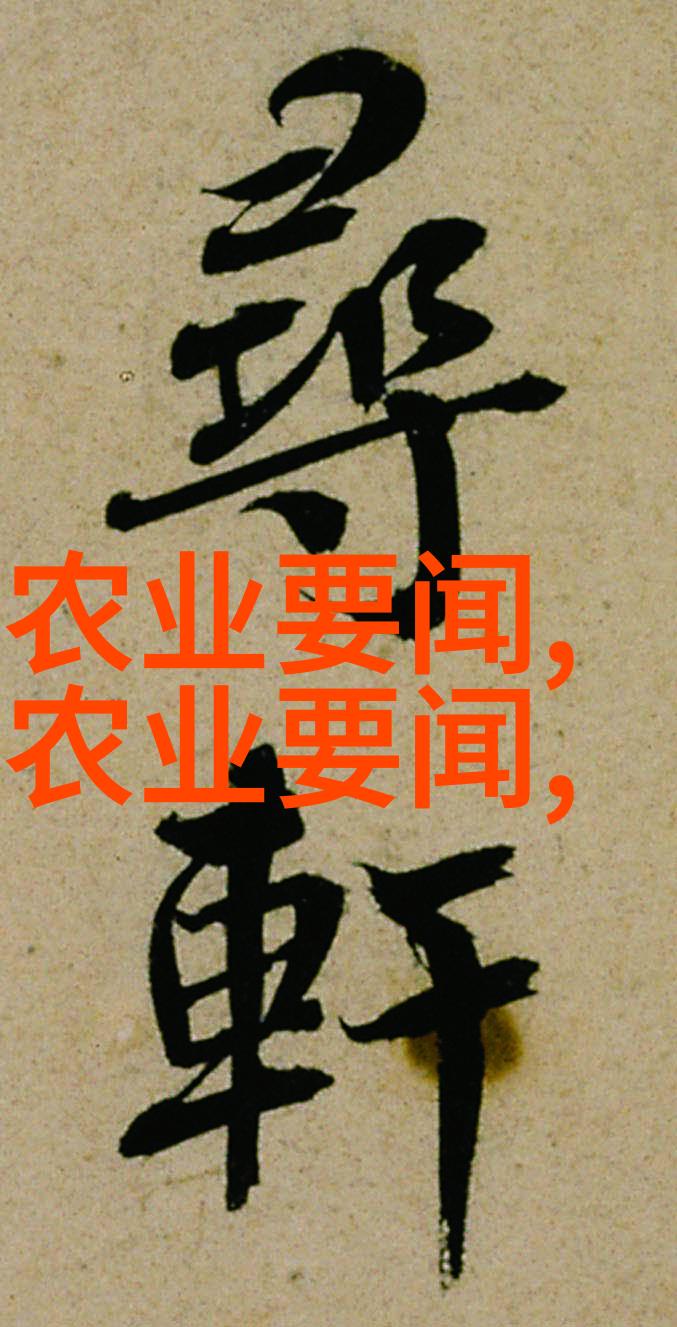 尋
农业要闻,
农业要闻,
軒